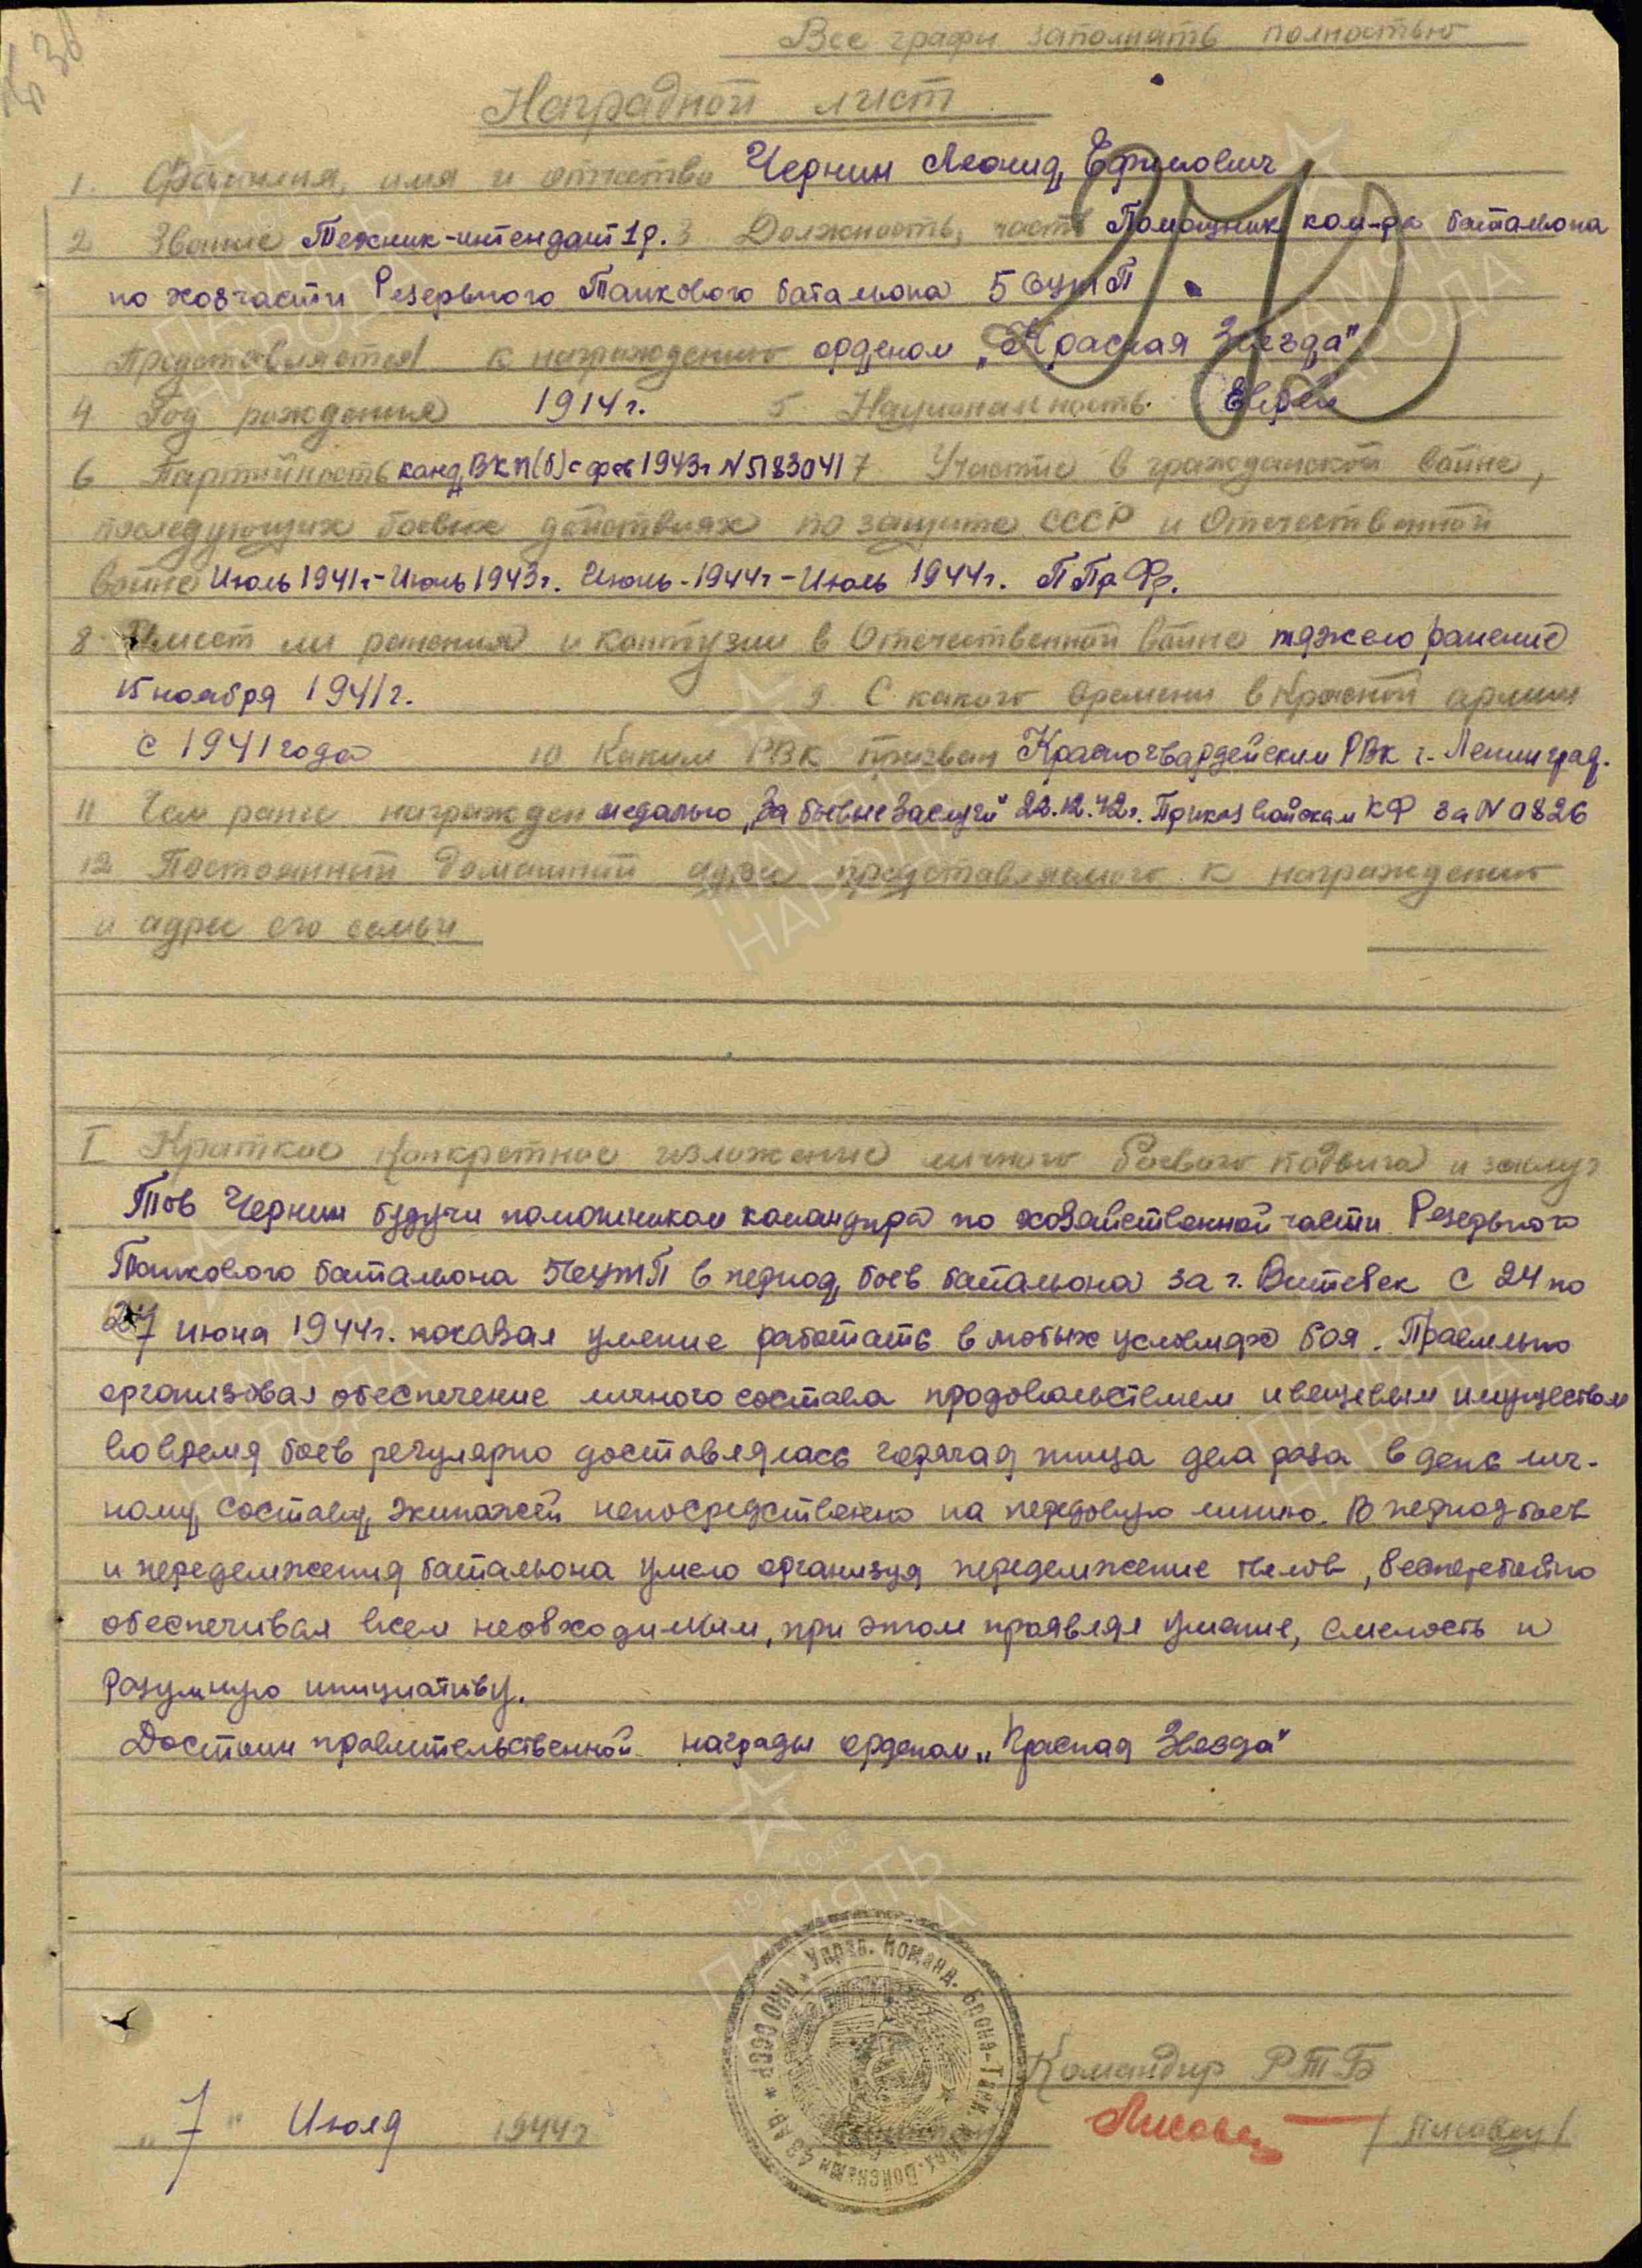 Все графы заполнять полностью
Наградной лист
1. Фамилия, имя и отчество Чернин Леонид Ефимович
2 Звание Техник-интендант 1р. 3 Должность, часть Помощник ком-ра батальона
по хозчасти Резервного Танкового батальона 5 ОУТП
Представляется к награждению орденом „Красная Звезда"
4 Год рождения 1914г. 5 Национальность. Еврей
6 Партийность канд ВКП(б) с фев 1943г N5183041 7 Участие в гражданской войне,
последующих боевых действиях по защите СССР и Отечественной
войне Июль 1941г-Июль 1943г. Июнь-1944г-Июль 1944г. П Пр Фр.
8 Имеет ли ранения и контузии в Отечественной войне тяжело ранение
15 ноября 1941г. 9. С какого времени в Красной армии
с 1941 года 10 Каким РВК призван Красногвардейским РВК г. Ленинград.
11 Чем ранее награжден медалью „За боевые заслуги" 22.12.42г. Приказ войскам КФ за N 0826
12 Постоянный домашний адрес представляемого к награждению
и адрес его семьи
I Краткое конкретное изложение личного боевого подвига и заслуг
Тов Чернин будучи помошником командира по хозяйственной части Резервного
Танкового батальона 5 ОУТП в период боев батальона за г. Витебск с 24 по
27 июня 1944г. показал умение работать в любых условиях боя. Правильно
организовал обеспечение личного состава продовольствием и вещевым имуществом
во время боев регулярно доставлялась горячая пища два раза в день лич-
ному составу экипажей непосредственно на передовую линию. В период боев
и передвижения батальона умело организуя передвижение тылов, бесперебойно
обеспечивал всем необходимым, при этом проявлял умение, смелость и
разумную инициативу.
Достоин правительственной награды орденом „Красная Звезда"
НКО СССР Управ. Команд. Броне-Танк. и Мех. Войсками 43 АР.
Командир РТБ
„7" Июля 1944г